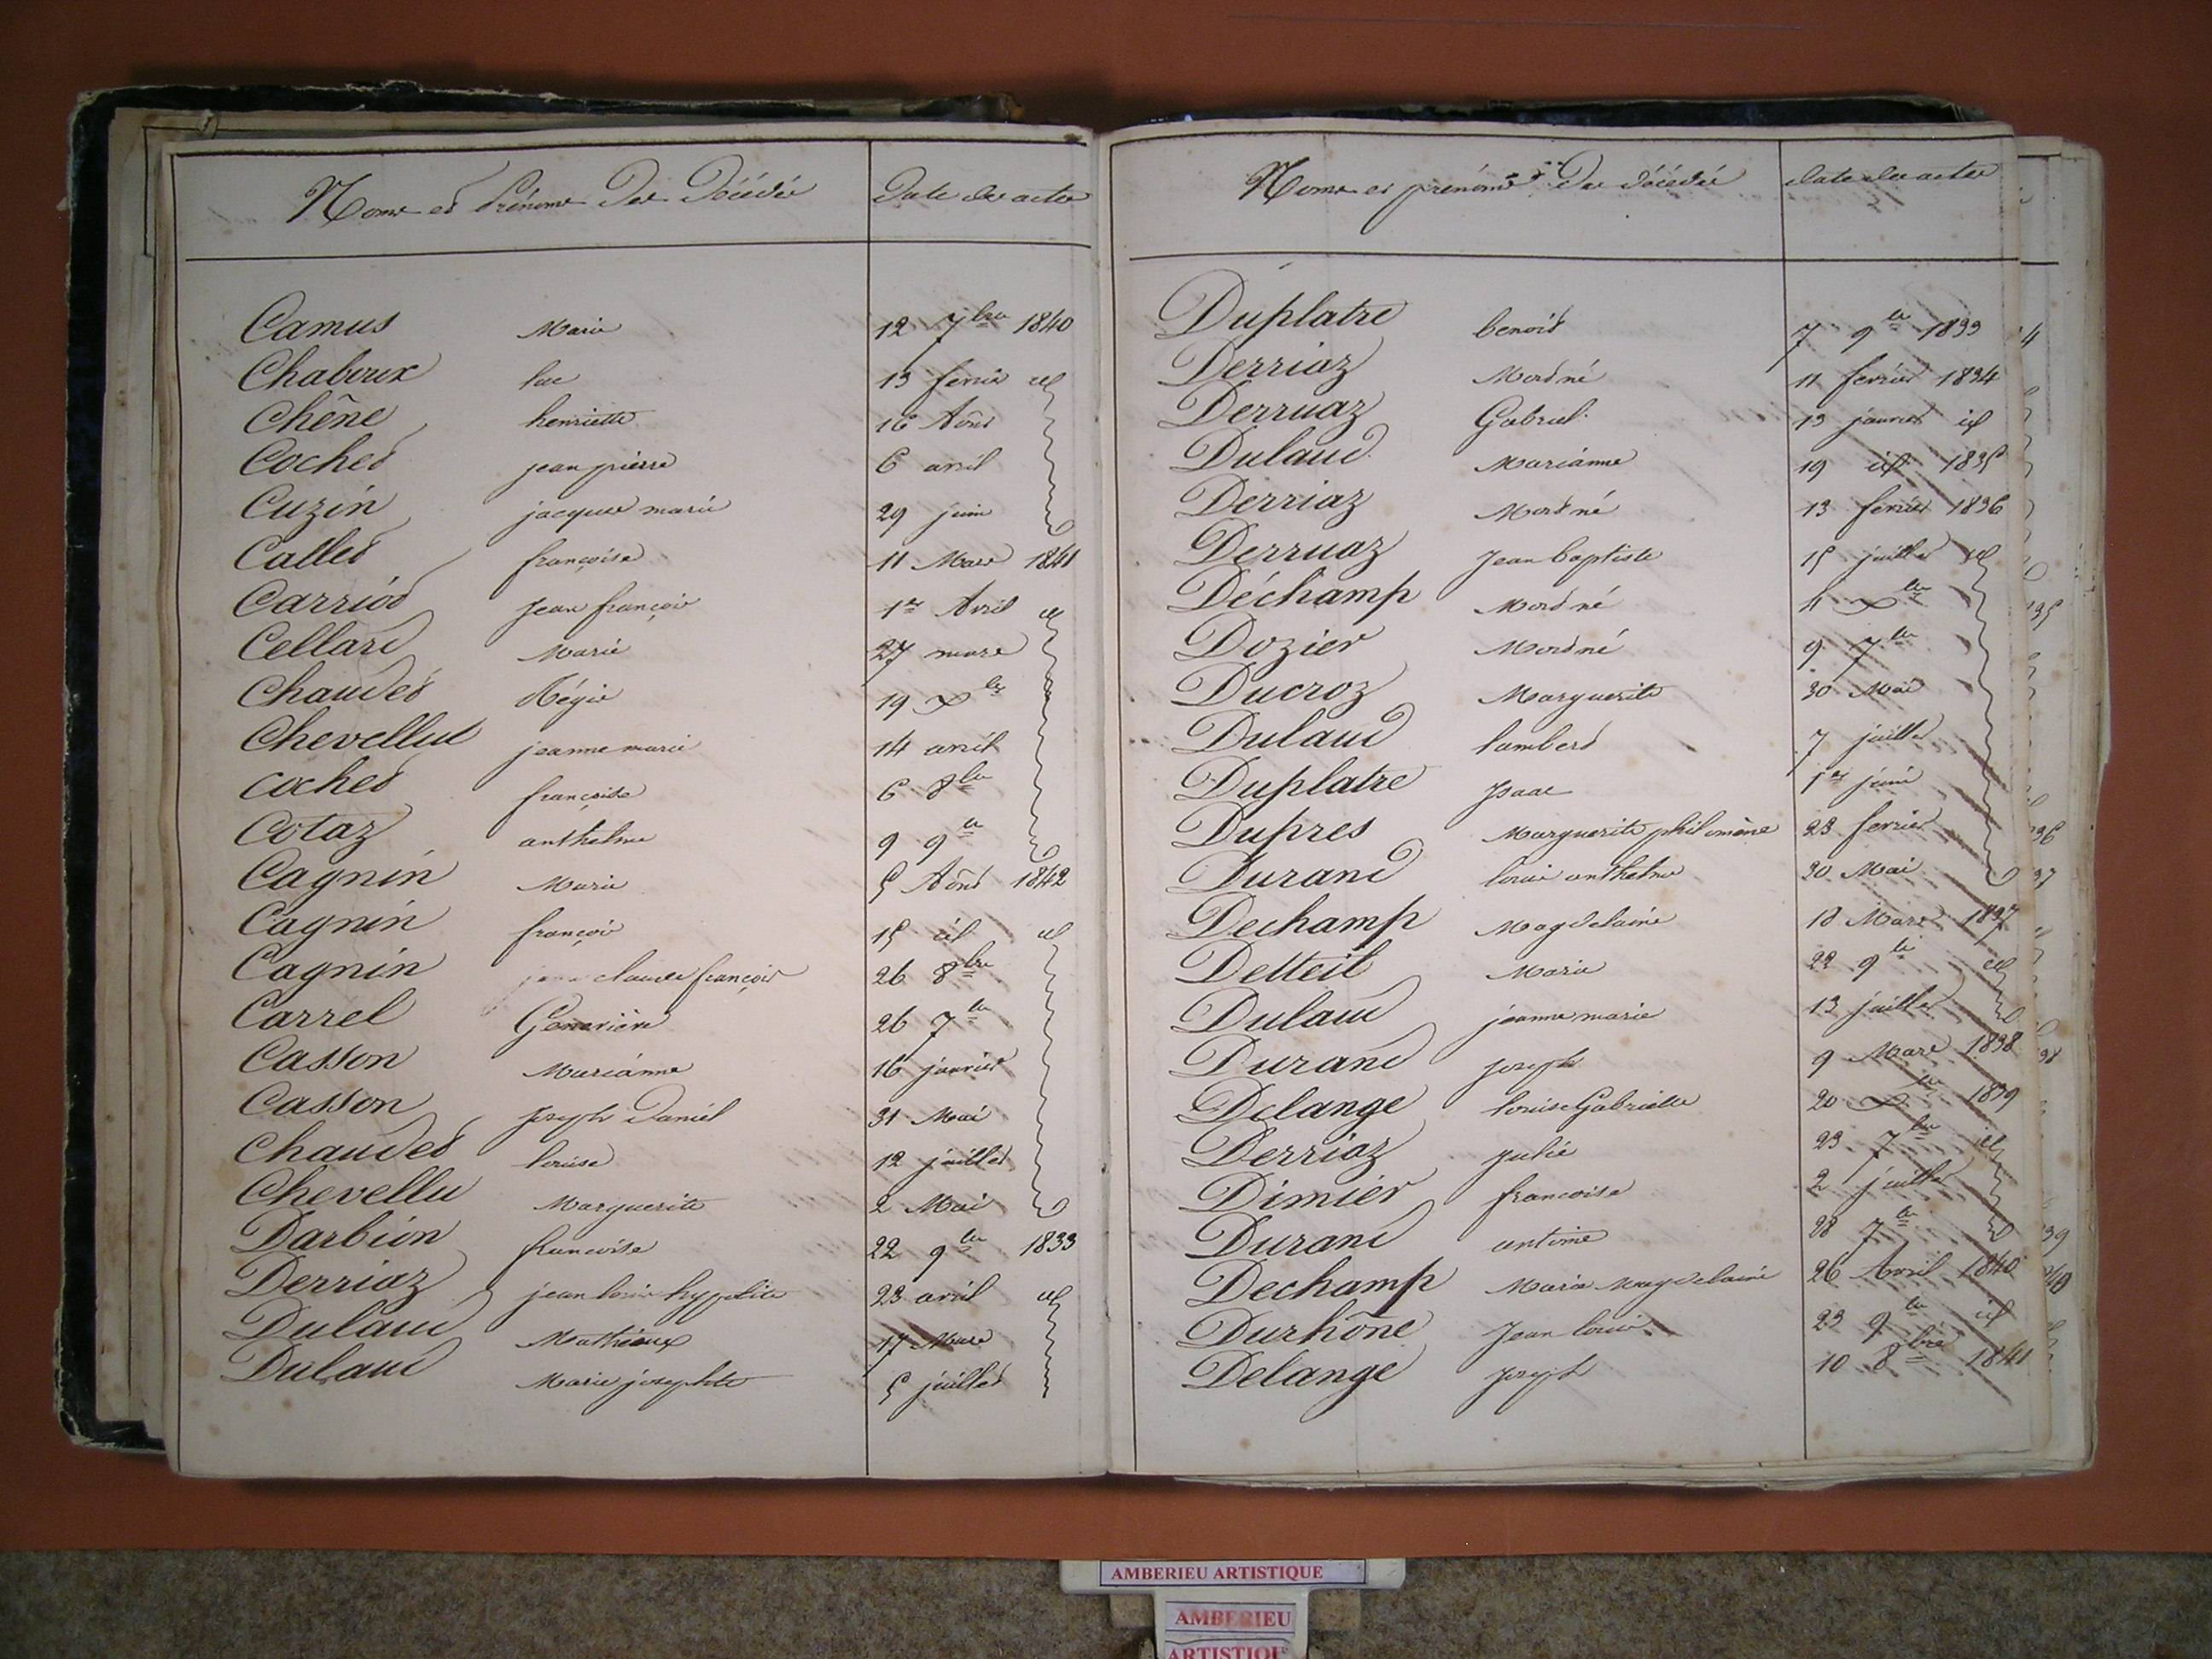 Noms et Prénoms Des Décédés Date des actes
Camus Marie 12 7bre 1840
Chaboux luc 13 fevrier id
Chêne henriette 16 Aôut
Cochet jean pierre 6 avril
Cuzin jacques marie 29 juin
Callet françoise 11 Mars 1841
Carriot Jean françois 1er Avril id
Cellard Marie 27 mars
Chaudet Régis 19 Xbre
Chevellut jeanne marie 14 avril
cochet françoise 6 8bre
Cotaz anthelme 9 9bre
Cagnin Marie 5 Aôut 1842
Cagnin françois 15 id id
Cagnin claude françois 26 8bre
Carrel Geneviève 26 7bre
Casson Marianne 16 janvier
Casson Joseph Daniel 31 Mai
Chaudet louise 12 juillet
Chevellu Marguerite 2 Mai
Darbion francoise 22 9bre 1833
Derriaz jean louis hypolite 23 avril id
Dulaud Mathieux 17 Mars
Dulaud Marie josephte 5 juillet
Noms et prénoms Des décédés date des actes
Duplatre benoit 7 9bre 1833
Derriaz Mort né 11 fevrier 1834
Derruaz Gabriel 13 janvier id
Dulaud Marianne 19 id 1835
Derriaz Mort né 13 fevrier 1836
Derruaz Jean baptiste 15 juillet id
Déchamp Mort né 11 Xbre
Dozier Mort né 9 7bre
Ducroz Marguerite 30 Mai
Dulaud lambert 7 juillet
Duplatre Isaac 1er juin
Dupres Marguerite philomène 23 fevrier
Durand louis anthelme 20 Mai
Dechamp Magdelaine 18 Mars 1837
Detteil Marie 22 9bre id
Dulaud jeanne marie 13 juillet
Durand joseph 9 Mars 1838
Delange louise Gabrielle 20 Xbre 1839
Derriaz julie 23 7bre id
Dimier francoise 2 juillet
Durand antoine 28 7bre
Dechamp Marie Magdelaine 26 Avril 1840
Durhône Jean louis 23 9bre id
Delange joseph 10 8bre 1841
AMBERIEU ARTISTIQUE
AMBERIEU
ARTISTIQUE